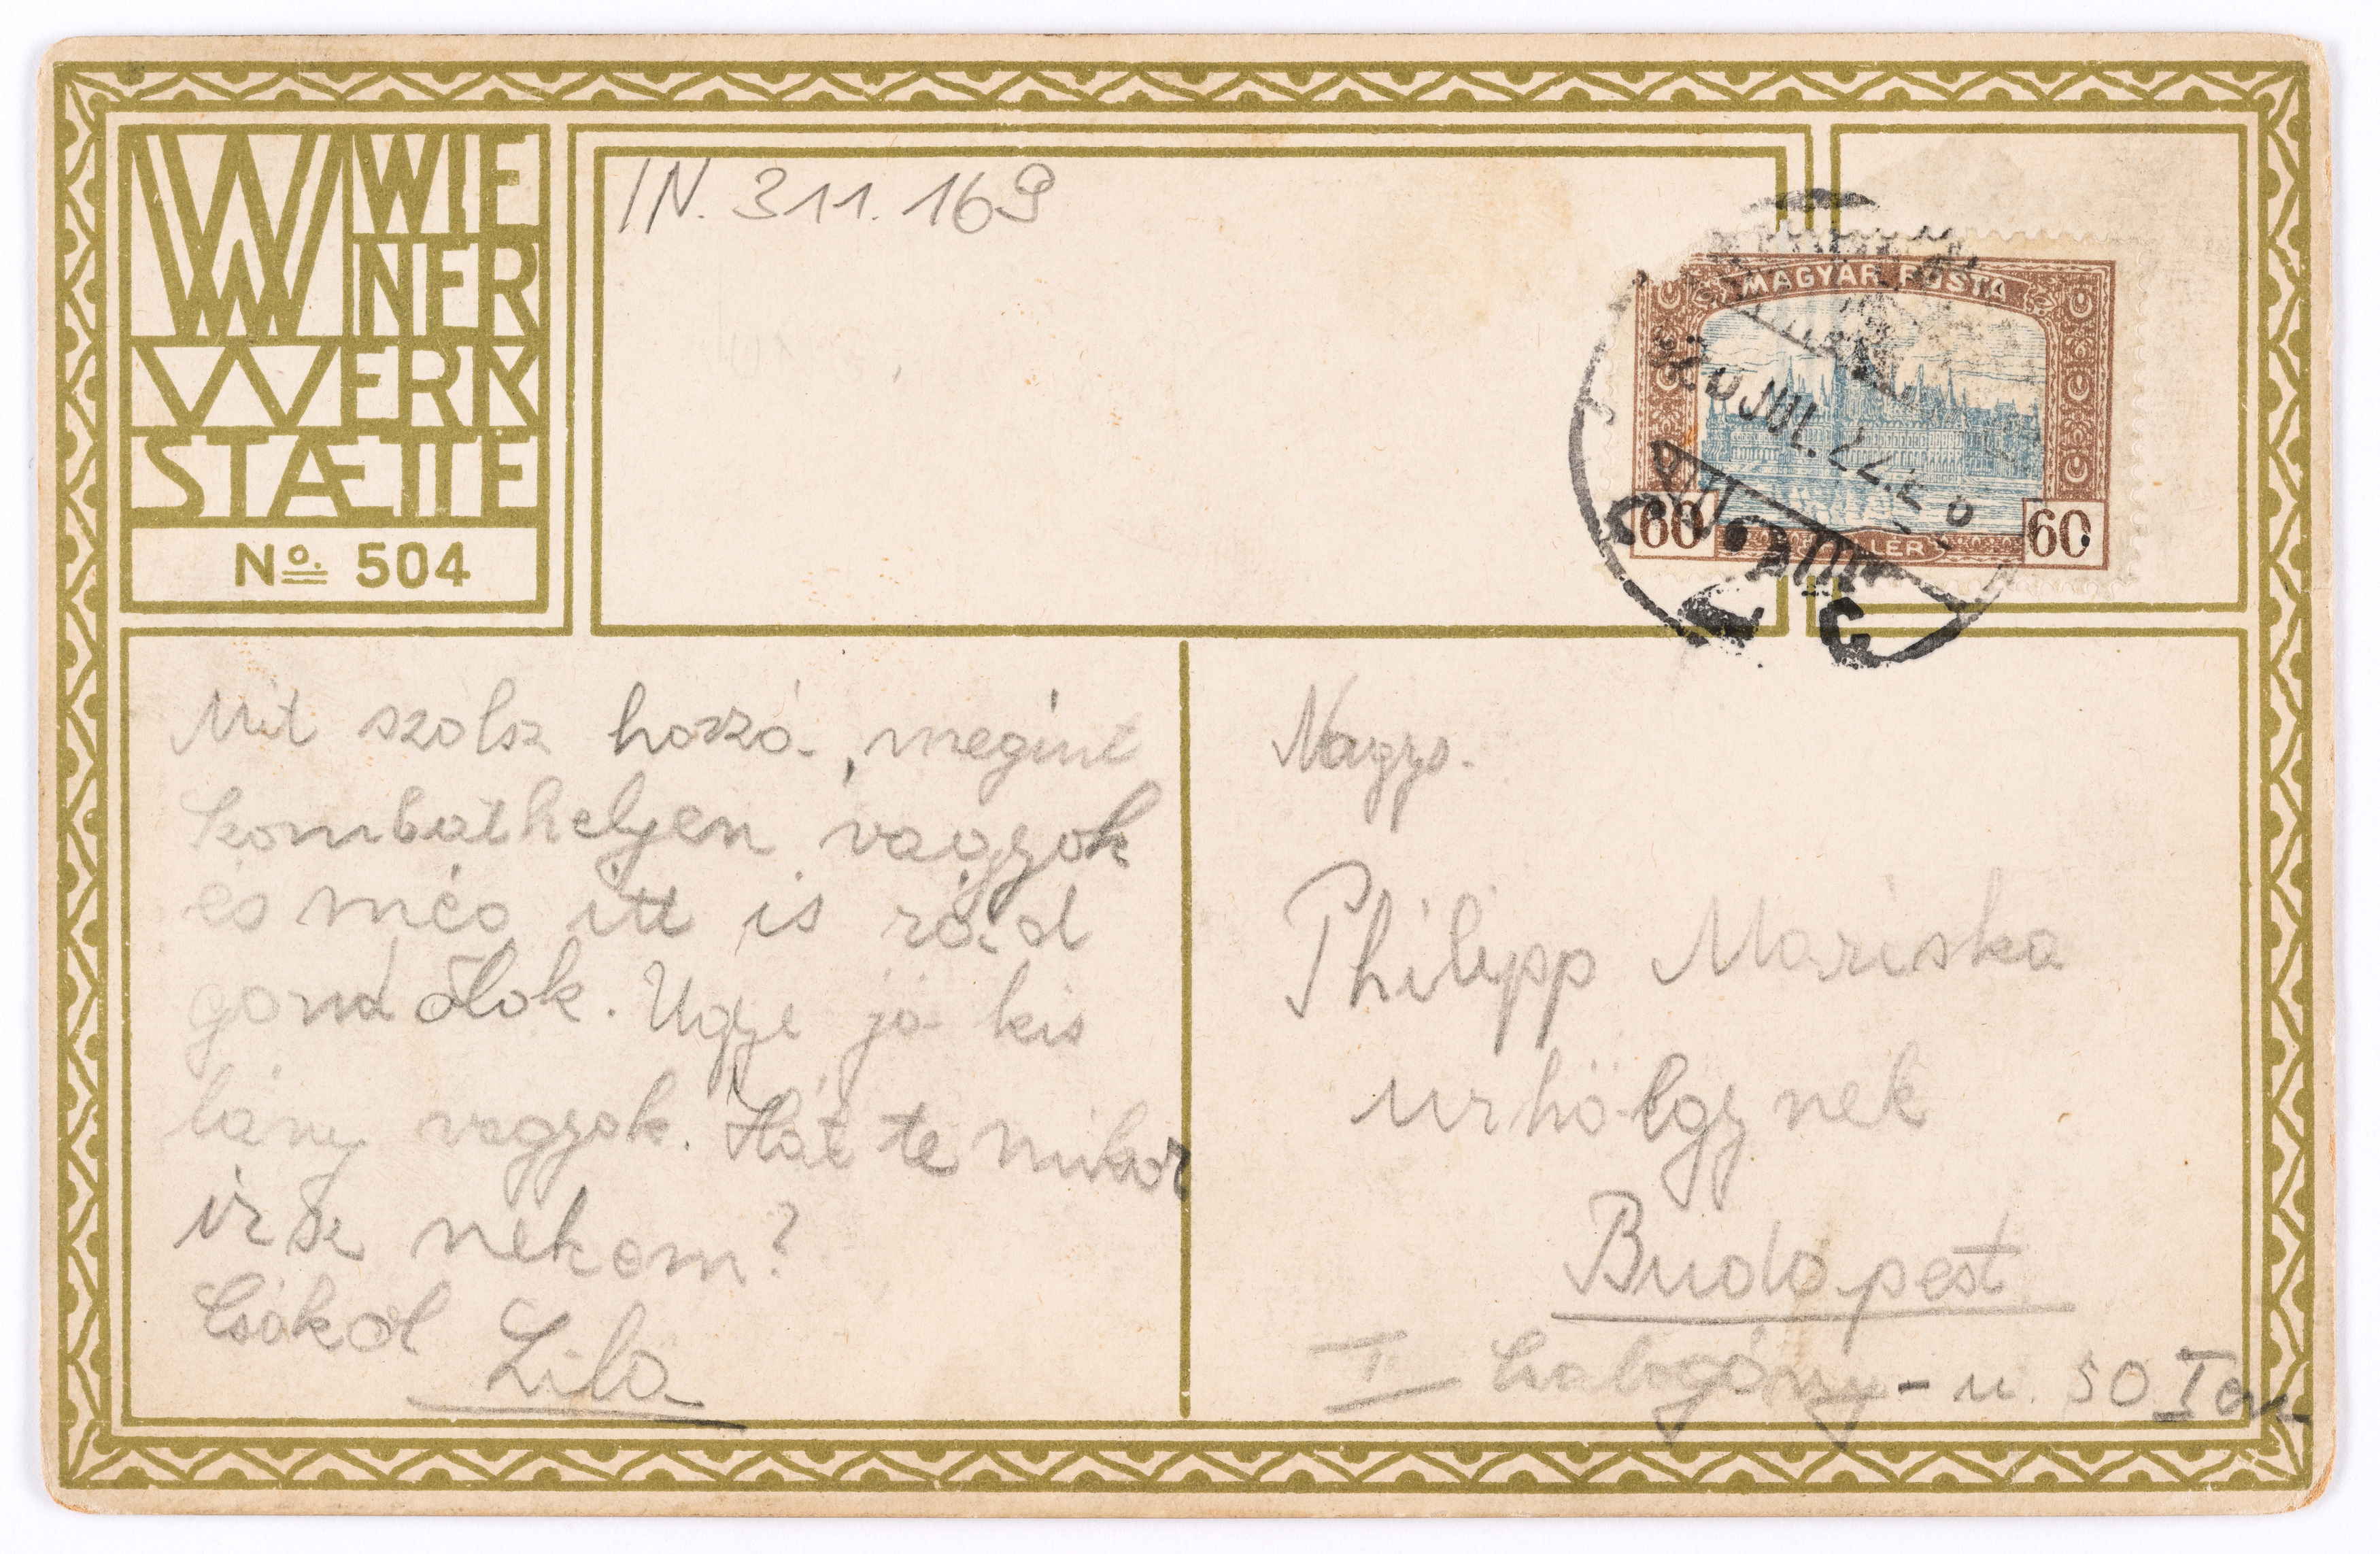 WW WIE
NER
WERK
STÆTTE
No. 504
IN. 311.169
MAGYAR POSTA
920 JUL. 22.
60 60
Mit szolsz hozzá, megint
Szombathelyen vagyok
és még itt is rád
gondolok. Ugye jó kis
lány vagyok. Hát te mikor
irsz nekem?
Csókol Lila
Nagys.
Philipp Mariska
urhölgynek
Budapest
I. - u. 50 I